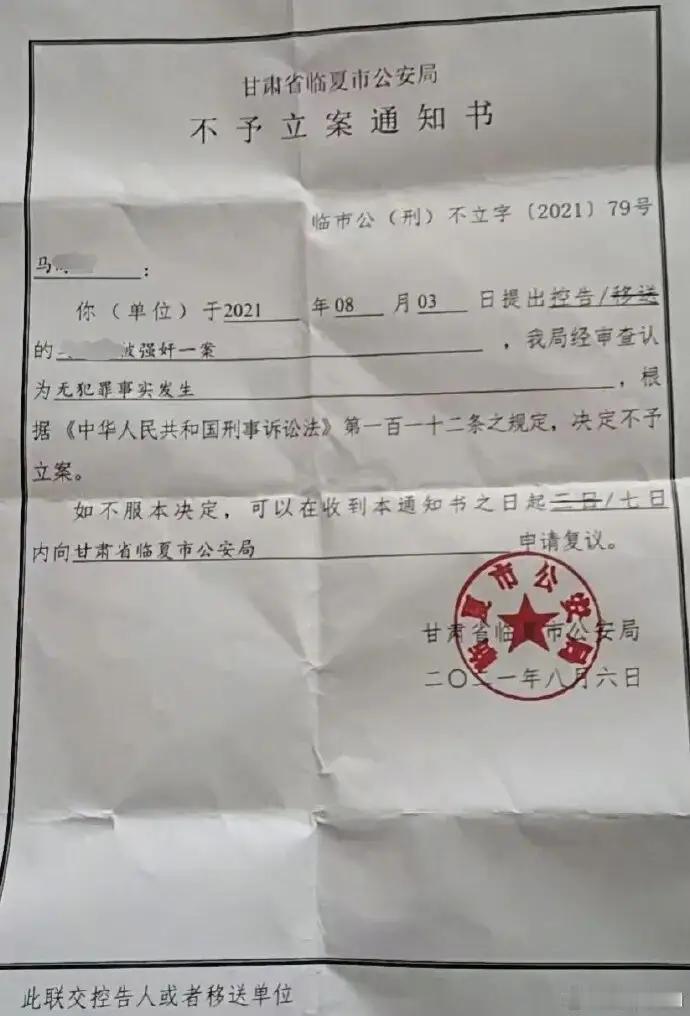 甘肃省临夏市公安局
不予立案通知书
临市公（刑）不立字〔2021〕79号
马：
你（单位）于2021年08月03日提出控告/移送
的被强奸一案，我局经审查认
为无犯罪事实发生，根
据《中华人民共和国刑事诉讼法》第一百一十二条之规定，决定不予
立案。
如不服本决定，可以在收到本通知书之日起三日/七日
内向甘肃省临夏市公安局申请复议。
临夏市公安局
甘肃省临夏市公安局
二〇二一年八月六日
此联交控告人或者移送单位